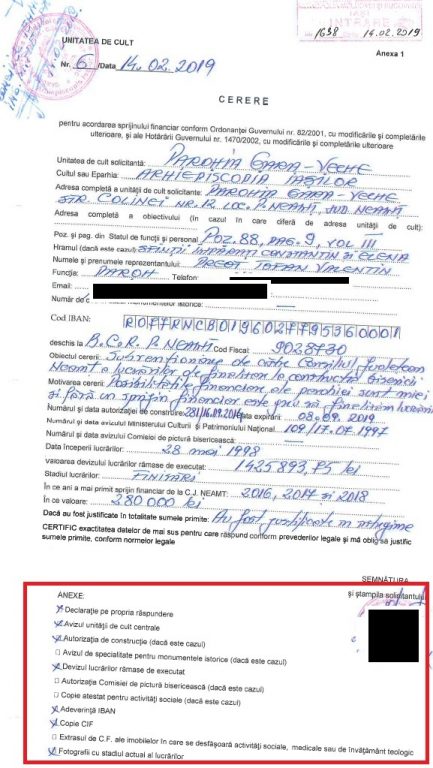 IAȘI
INTRARE
1638 14.02.2019
UNITATEA DE CULT
Anexa 1
Nr. 6 /Data 14.02.2019
CERERE
pentru acordarea sprijinului financiar conform Ordonanței Guvernului nr. 82/2001, cu modificările și completările
ulterioare, și ale Hotărârii Guvernului nr. 1470/2002, cu modificările și completările ulterioare
Unitatea de cult solicitantă: PAROHIA GARA-VECHE
Cultul sau Eparhia: ARHIEPISCOPIA IAȘILOR
Adresa completă a unității de cult solicitante: PAROHIA GARA-VECHE
STR. COLINEI NR.12, LOC. P. NEAMȚ, JUD. NEAMȚ
Adresa completă a obiectivului (în cazul în care diferă de adresa unității de cult):
Poz. și pag. din Statul de funcții și personal POZ. 88, PAG. 9, VOL III
Hramul (dacă este cazul) SFINȚII ÎMPĂRAȚI CONSTANTIN ȘI ELENA
Numele și prenumele reprezentantului: PREOT TOFAN VALENTIN
Funcția: PAROH Telefon:
Email:
Număr de istorice:
Cod IBAN:
deschis la B.C.R. P. NEAMȚ Cod Fiscal: 9028730
Obiectul cererii: Subvenționarea de către Consiliul Județean
Neamț a lucrărilor de finalizare la construcția bisericii
Motivarea cererii: Posibilitățile financiare ale parohiei sunt mici
și fără un sprijin financiar este greu să finalizăm lucrările
Numărul și data autorizației de construire: data expirării 08.09.2019
Numărul și data avizului Ministerului Culturii și Patrimoniului Național: 109/17.07.1997
Numărul și data avizului Comisiei de pictură bisericească:
Data începerii lucrărilor: 28 mai 1998
valoarea devizului lucrărilor rămase de executat: 1425.893,75 lei
Stadiul lucrărilor: FINISĂRI
În ce ani a mai primit sprijin financiar de la C.J. NEAMȚ: 2016, 2017 și 2018
În ce valoare: 280 000 lei
Dacă au fost justificate în totalitate sumele primite: Au fost justificate în întregime
CERTIFIC exactitatea datelor de mai sus pentru care răspund conform prevederilor legale și mă oblig să justific
sumele primite, conform normelor legale
SEMNĂTURA
și ștampila solicitantului
ANEXE:
Declarație pe propria răspundere
Avizul unității de cult centrale
Autorizația de construcție (dacă este cazul)
Avizul de specialitate pentru monumentele istorice (dacă este cazul)
Devizul lucrărilor rămase de executat
Autorizația Comisiei de pictură bisericească (dacă este cazul)
Copie atestat pentru activități sociale (dacă este cazul)
Adeverință IBAN
Copie CIF
Extrasul de C.F. ale imobilelor în care se desfășoară activități sociale, medicale sau de învățământ teologic
Fotografii cu stadiul actual al lucrărilor